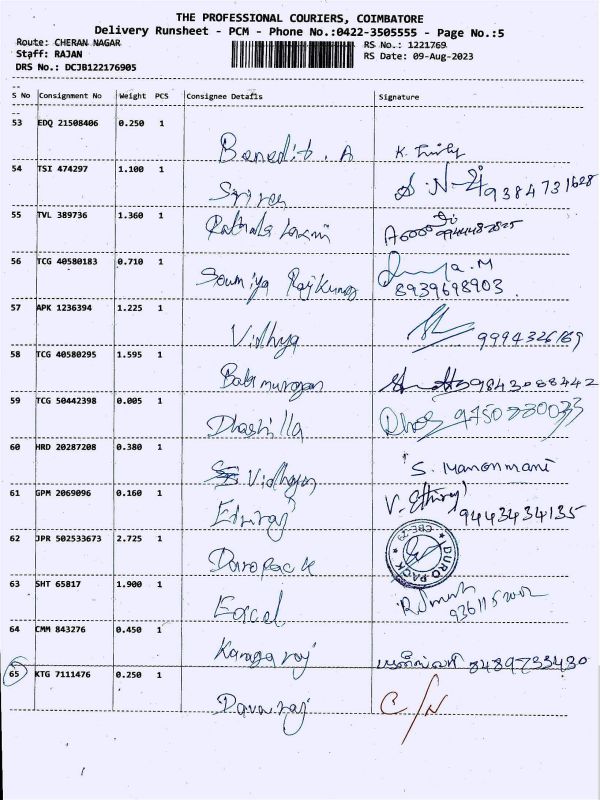 THE PROFESSIONAL COURIERS, COIMBATORE
Delivery Runsheet - PCM - Phone No.:0422-3505555 - Page No.:5
Route: CHERAN NAGAR
RS No.: 1221769
Staff: RAJAN
RS Date: 09-Aug-2023
DRS No.: DCJB122176905
S No Consignment No Weight PCS Consignee Details Signature
53 EDQ 21508406 0.250 1
Benedit. A
54 TSI 474297 1.100 1
9384731628
55 TVL 389736 1.360 1
56 TCG 40580183 0.710 1
Soumiya Rajkumar
8939698903
57 APK 1236394 1.225 1
Vidhya 9994326169
58 TCG 40580295 1.595 1
Balamurogan 9843088442
59 TCG 50442398 0.005 1
60 HRD 20287208 0.380 1
S. Manonmani
61 GPM 2069096 0.160 1
9443434135
62 JPR 502533673 2.725 1
Duropack DURO PACK CBE-29
63 SHT 65817 1.900 1
Excel
64 CMM 843276 0.450 1
Kanagaraj 8489733430
65 KTG 7111476 0.250 1
C/N